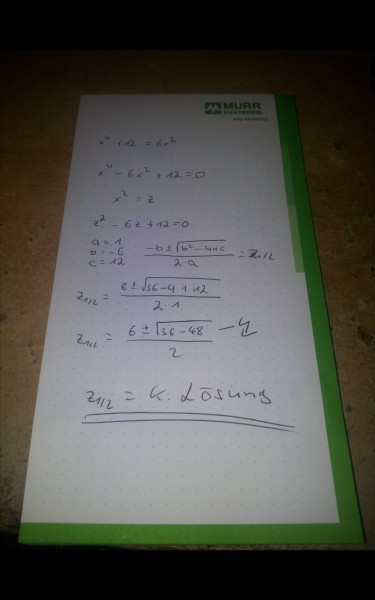 MURR
ELEKTRONIK
stay connected
x⁴ + 12 = 6x²
x⁴ - 6x² + 12 = 0
x² = z
z² - 6z + 12 = 0
a = 1
b = -6
c = 12
(-b ± √(b² - 4ac)) / (2a) = z1/2
z1/2 = (6 ± √(36 - 4 · 1 · 12)) / (2 · 1)
z1/2 = (6 ± √(36 - 48)) / 2
z1/2 = k. Lösung